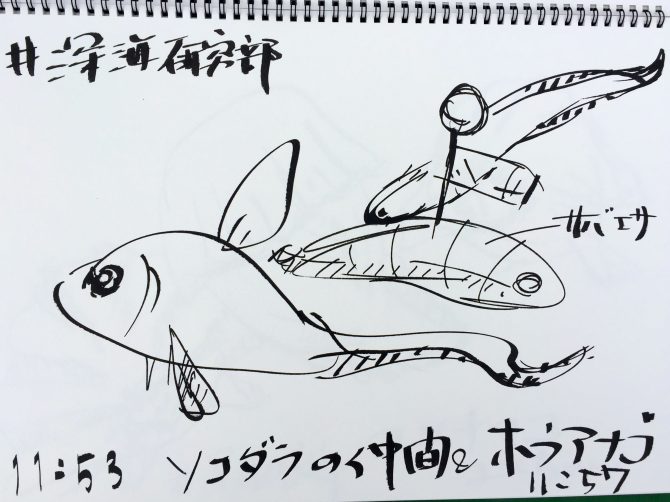 #深海研究部
サバエサ
11:53 ソコダラの仲間と ホラアナゴ
11:57